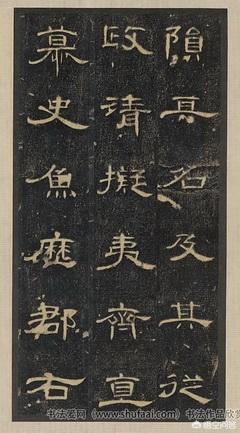 隕其名及其從
政清擬夷齊直
慕史魚歷郡右
书法爱网（www.shufaai.com）书法作品欣
悟空问答